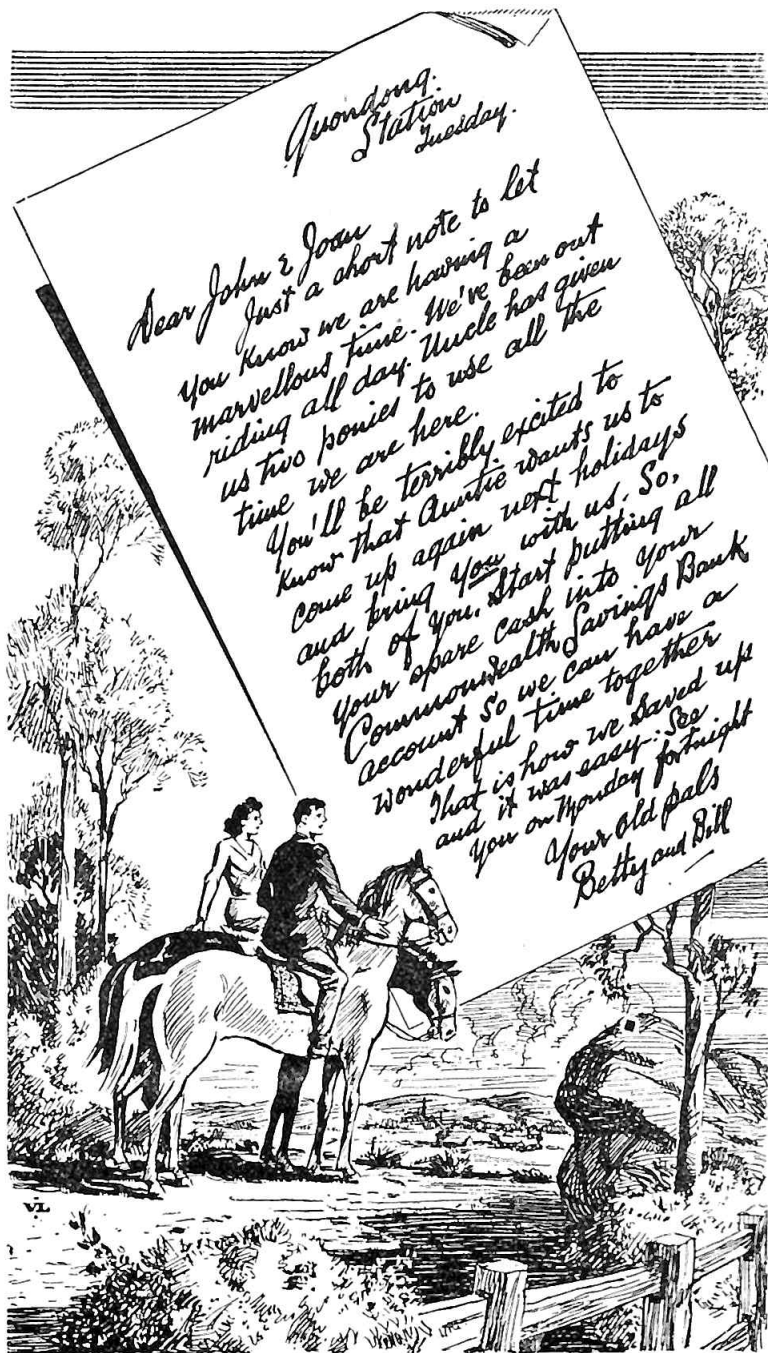 Quondong.
Station
Tuesday.
Dear John & Joan
Just a short note to let
you know we are having a
marvellous time. We've been out
riding all day. Uncle has given
us two ponies to use all the
time we are here.
You'll be terribly excited to
know that Auntie wants us to
come up again next holidays
and bring you with us. So,
both of you, start putting all
your spare cash into your
Commonwealth Savings Bank
account so we can have a
wonderful time together
That is how we saved up
and it was easy. See
you on Monday fortnight
Your old pals
Betty and Bill
VL